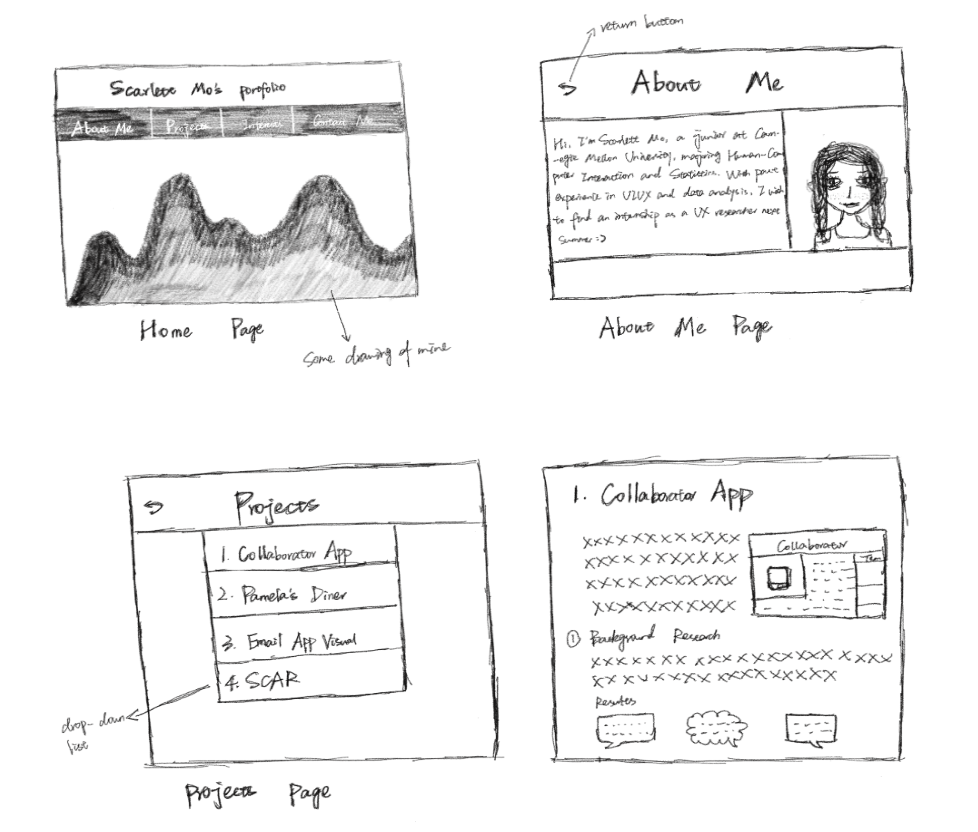 Scarlett Mo's porofolio
About Me
Projects
Interests
Contact Me
Home Page
Some drawing of mine
return button
About Me
Hi, I'm Scarlett Mo, a junior at Carn-
-egie Mellon University, majoring Human-Com
puter Interaction and Statistics. With past
experience in UI UX and data analysis, I wish
to find an internship as a UX researcher next
summer :)
About Me Page
Projects
1. Collaborator App
2. Pamela's Diner
3. Email App Visual
4. SCAR
drop-down
list
Projects Page
1. Collaborator App
xxxxxxxxxxxxx
xxxx xxxxxxxx
xxxx xxxxxxxx
xxxxxxxxxxxx
Collaborator
① Background Research
xxxxxxx xxxxxxxxxxx x xxx
xxxxxxxx xxxxxxxxxx
Results